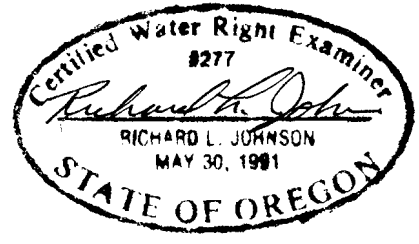 Certified Water Right Examiner
#277
Richard L. John
RICHARD L. JOHNSON
MAY 30, 1991
STATE OF OREGON